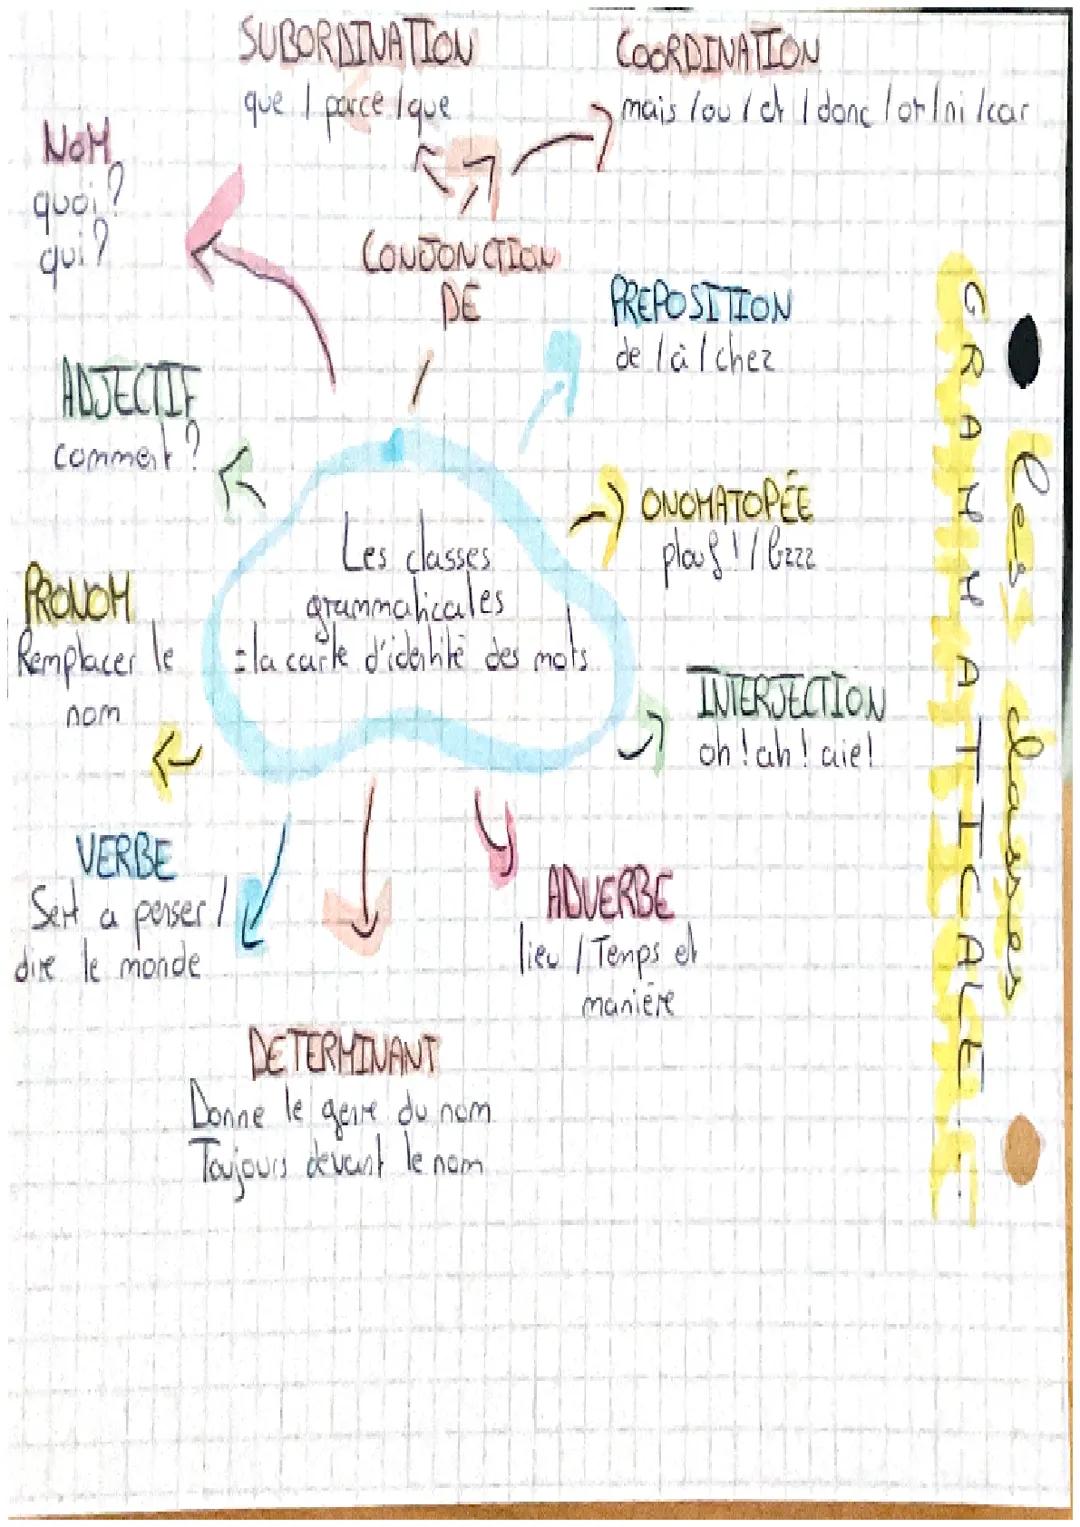 SUBORDINATION
que / parce / que
COORDINATION
mais / ou / et / donc / or / ni / car
NOM
quoi ?
qui ?
CONJONCTION
DE
PREPOSITION
de / à / chez
ADJECTIF
comment ?
ONOMATOPÉE
plouf ! / bzzz
Les classes
grammaticales
= la carte d'identité des mots
PRONOM
Remplacer le
nom
INTERJECTION
oh ! ah ! aie !
VERBE
Sert a penser /
dire le monde
ADVERBE
lieu / Temps et
manière
DETERMINANT
Donne le genre du nom
Toujours devant le nom
les classes
GRAMMATICALE